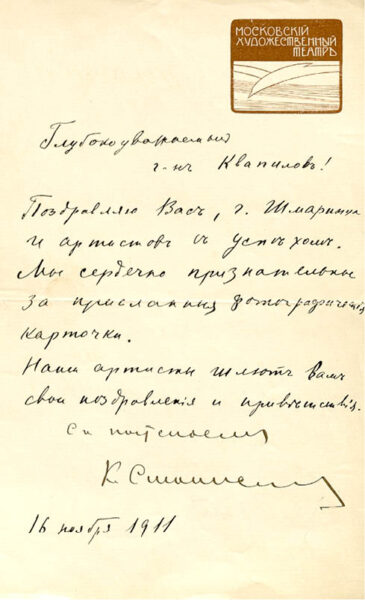 МОСКОВСКІЙ
ХУДОЖЕСТВЕННЫЙ
ТЕАТРЪ
Глубокоуважаемый
г-нъ Квапиловъ!
Поздравляю Васъ, г.
и артистовъ съ успѣхомъ.
Мы сердечно признательны
за присланныя фотографическія
карточки.
Наши артисты шлютъ Вамъ
свои поздравленія и привѣтствія.
Съ почтеніемъ
К.
16 ноября 1911